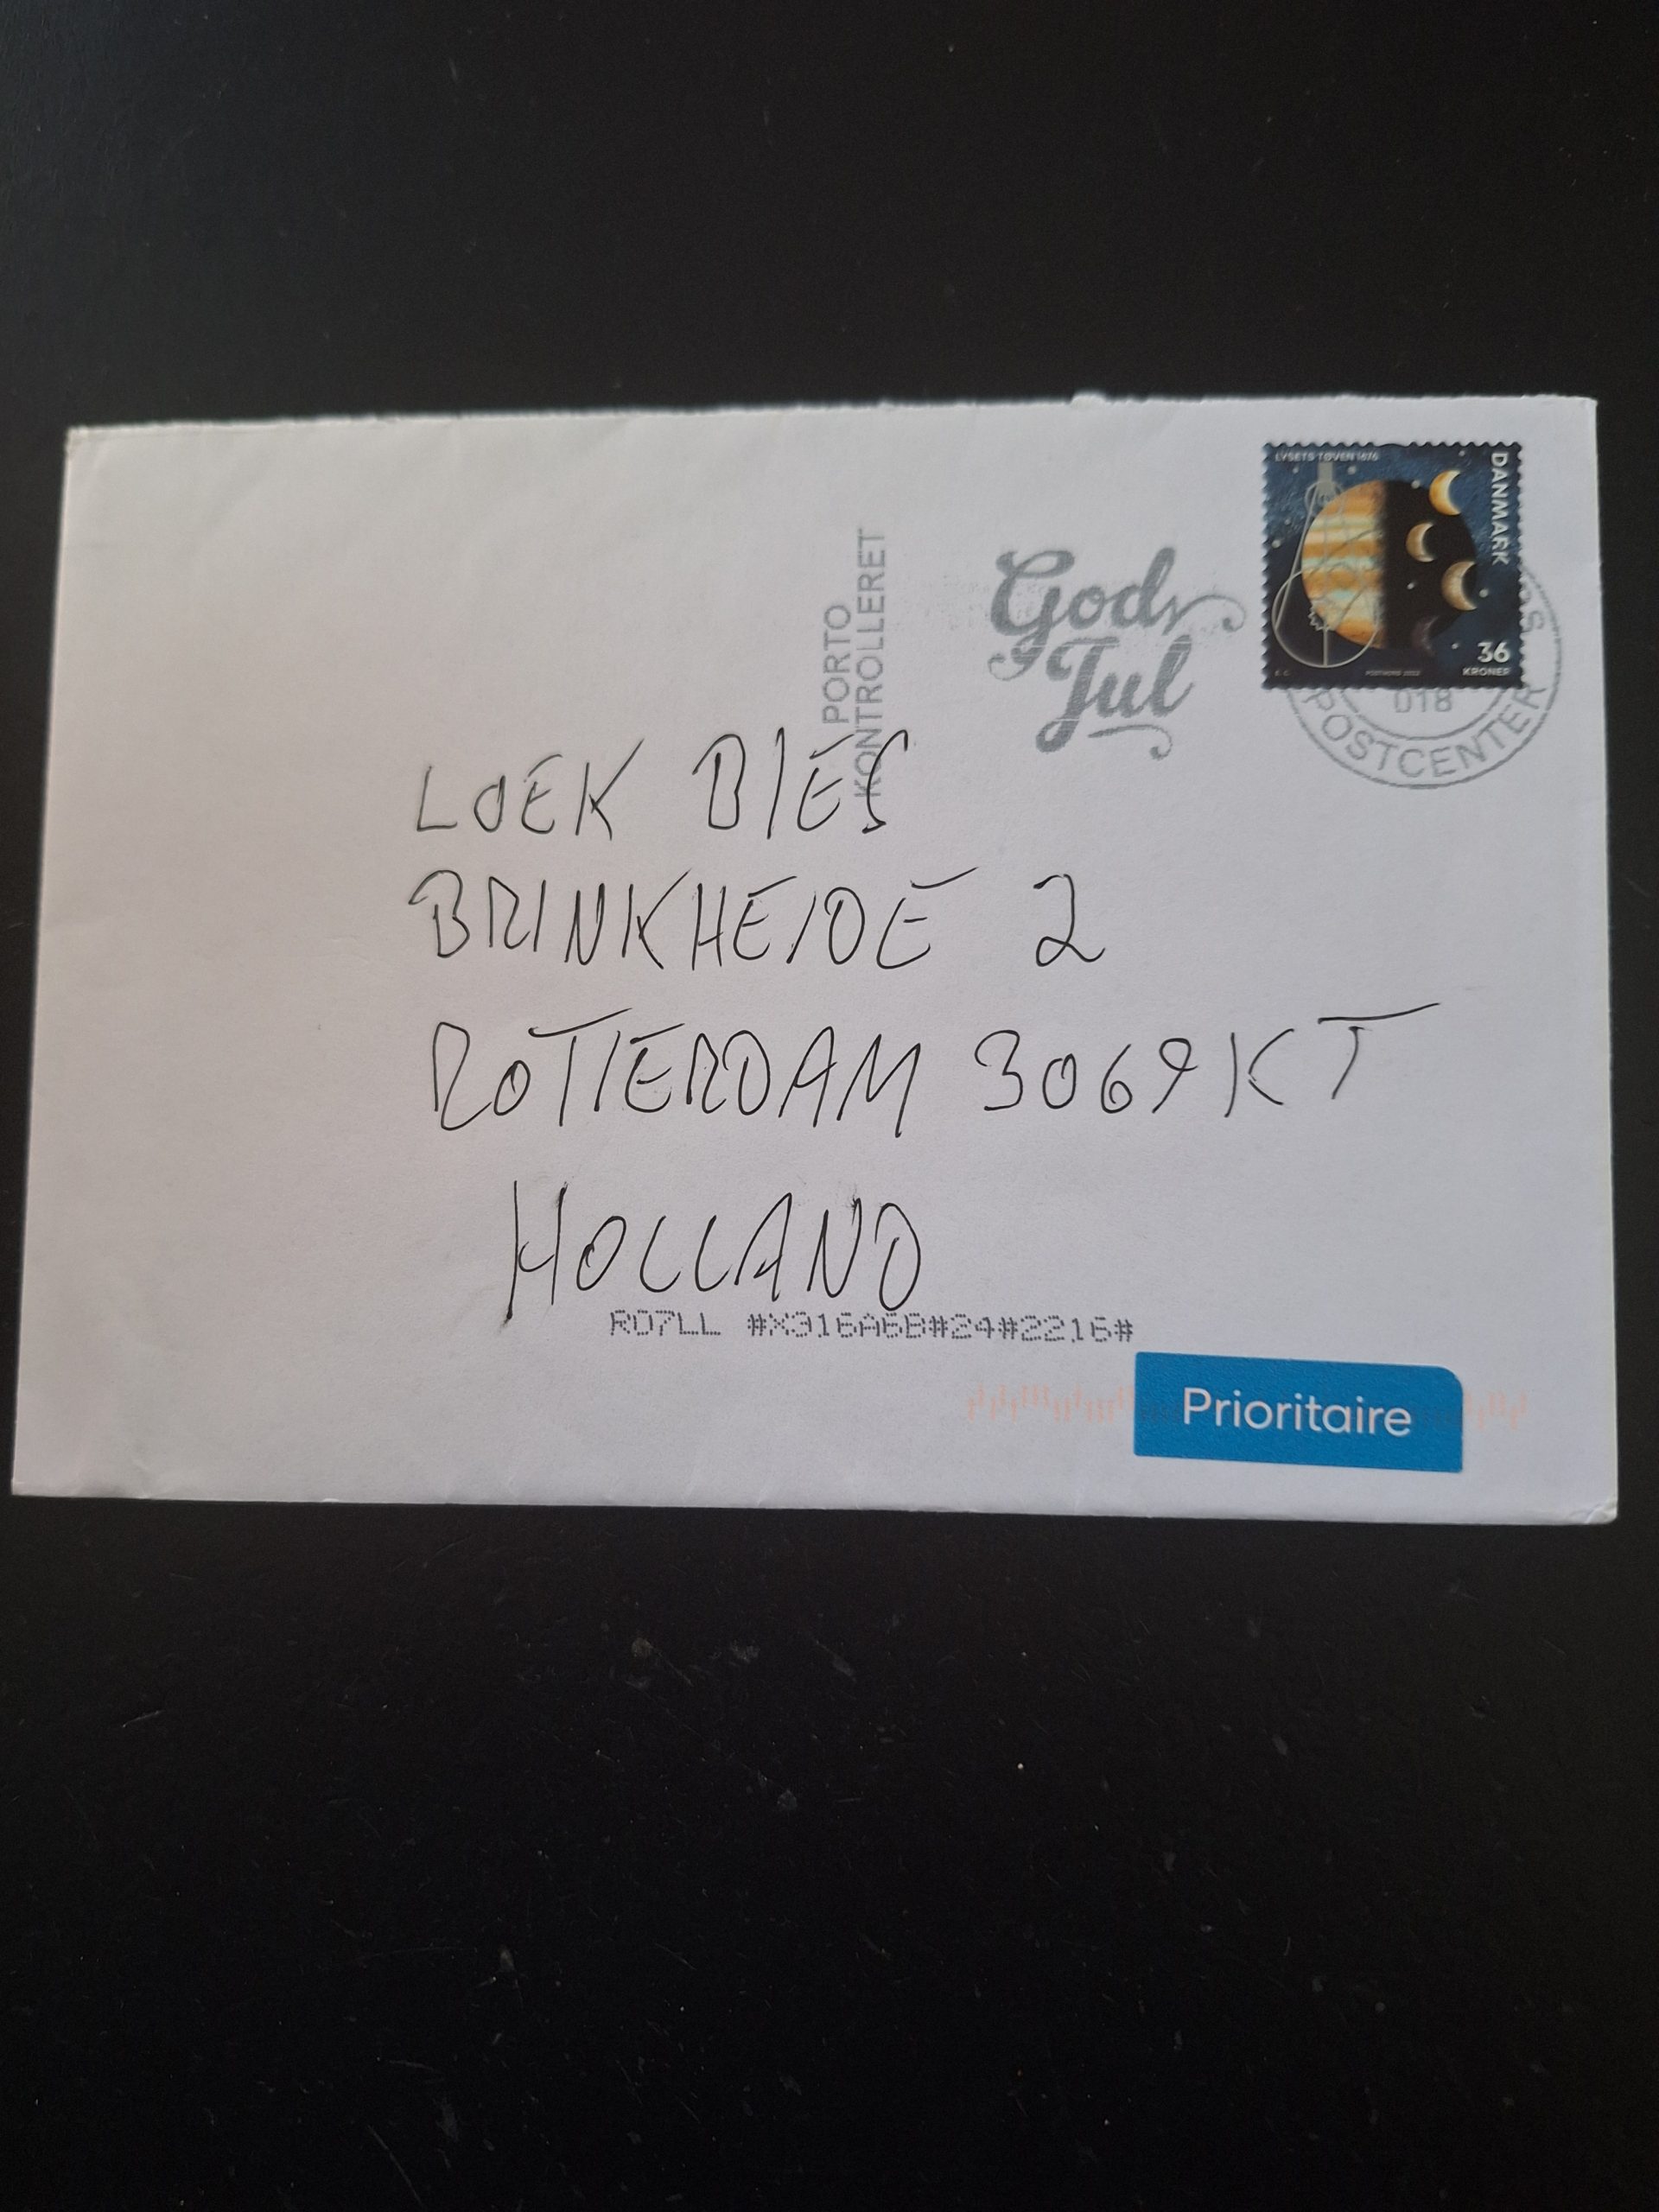 LYSETS TØVEN 1676
DANMARK
36
KRONER
PORTO
KONTROLLERET
God
Jul
018
POSTCENTER
LOEK BIES
BRINKHEIDE 2
ROTTERDAM 3069KT
HOLLAND
R07LL #X316A6B#24#2216#
Prioritaire